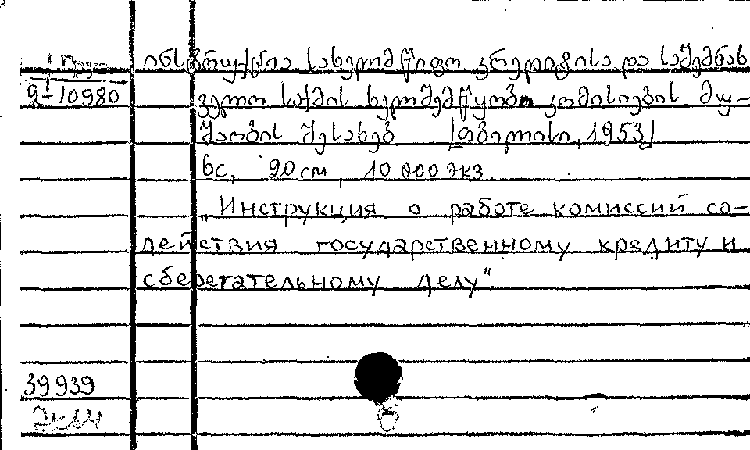 1 Груз.
ინსტრუქცია სახელმწიფო კრედიტისა და საშემნახ
2-10980 ველო საქმის ხელშემწყობი კომისიების მუ-
შაობის შესახებ [თბილისი, 1953]
6с, 20 см, 10 000 экз.
„Инструкция о работе комиссий со-
действия государственному кредиту и
сберегательному делу"
39939